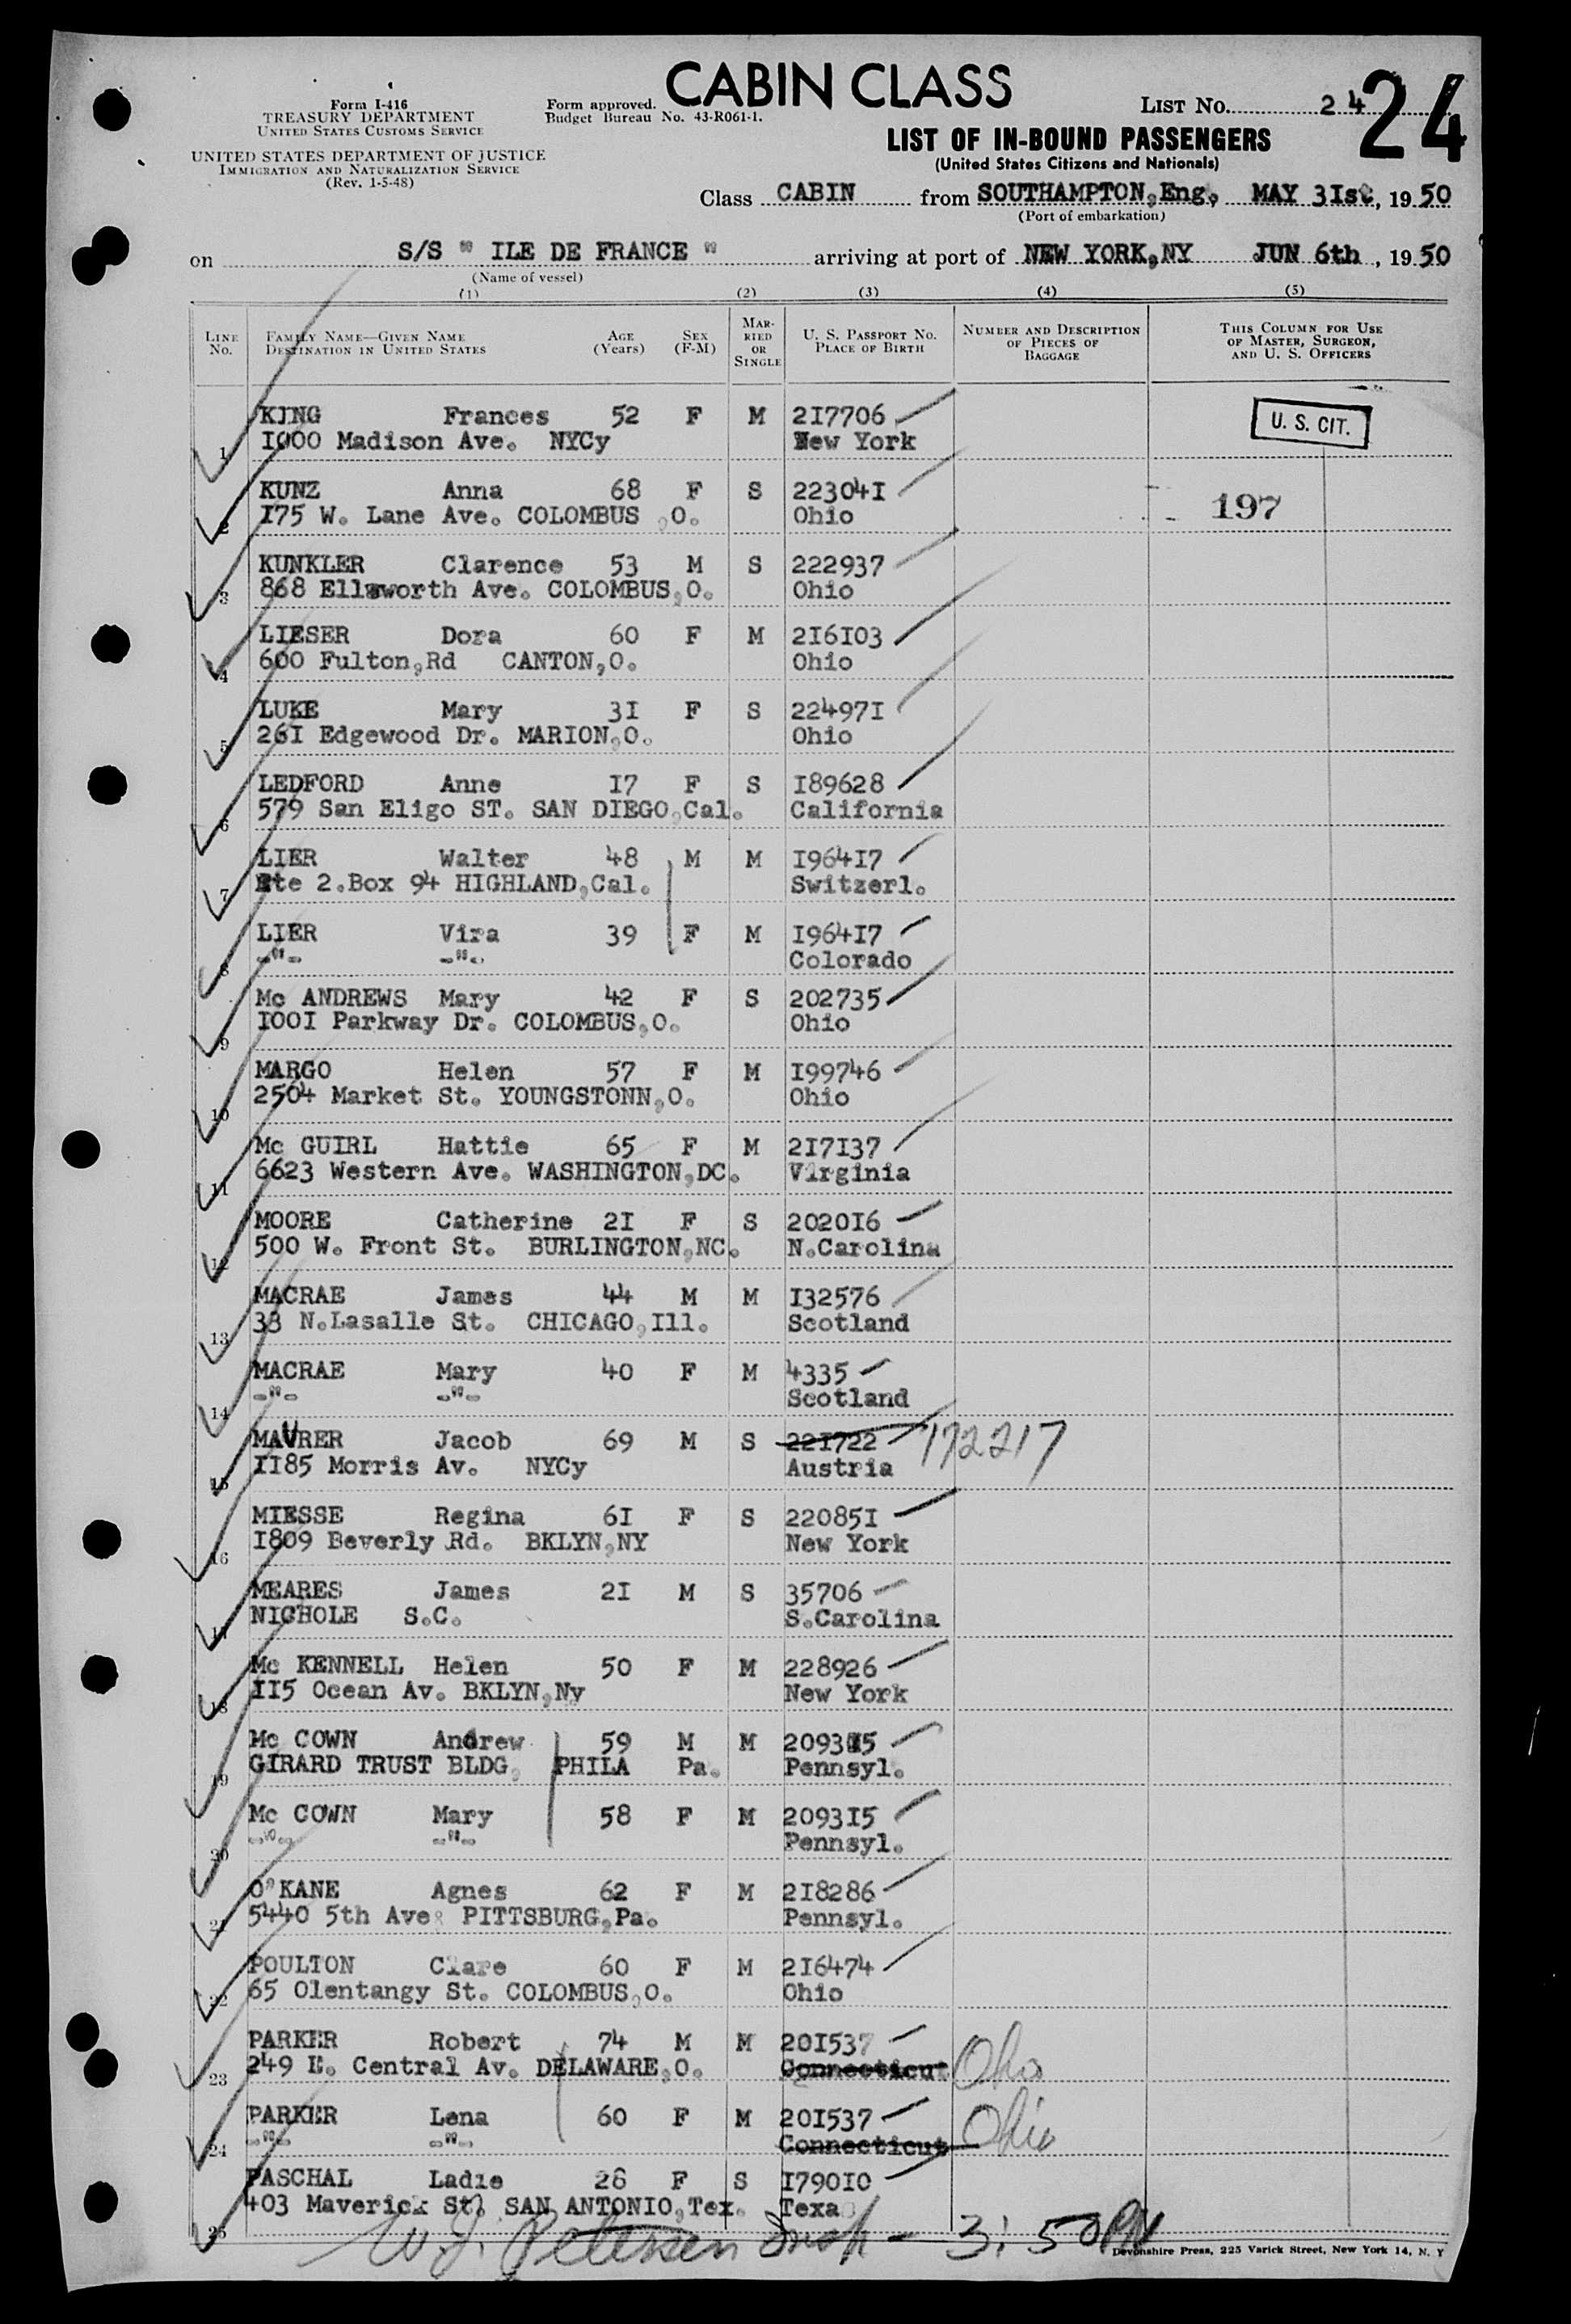 CABIN CLASS
Form I-416
TREASURY DEPARTMENT
UNITED STATES CUSTOMS SERVICE
UNITED STATES DEPARTMENT OF JUSTICE
IMMIGRATION AND NATURALIZATION SERVICE
(Rev. 1-5-48)
Form approved.
Budget Bureau No. 43-R061-1.
LIST NO. 24
24
LIST OF IN-BOUND PASSENGERS
(United States Citizens and Nationals)
Class CABIN from SOUTHAMPTON,Eng, MAY 3Ist, 1950
(Port of embarkation)
on S/S " ILE DE FRANCE " arriving at port of NEW YORK,NY JUN 6th, 1950
(Name of vessel)
(1) (2) (3) (4) (5)
LINE NO. FAMILY NAME—GIVEN NAME DESTINATION IN UNITED STATES AGE (Years) SEX (F-M) MARRIED OR SINGLE U. S. PASSPORT NO. PLACE OF BIRTH NUMBER AND DESCRIPTION OF PIECES OF BAGGAGE THIS COLUMN FOR USE OF MASTER, SURGEON, AND U. S. OFFICERS
KING Frances 52 F M 2I7706 U. S. CIT.
1 I000 Madison Ave. NYCy New York
KUNZ Anna 68 F S 22304I
2 I75 W. Lane Ave. COLOMBUS ,O. Ohio 197
KUNKLER Clarence 53 M S 222937
3 868 Ellsworth Ave. COLOMBUS,O. Ohio
LIESER Dora 60 F M 2I6I03
4 600 Fulton,Rd CANTON,O. Ohio
LUKE Mary 3I F S 22497I
5 26I Edgewood Dr. MARION,O. Ohio
LEDFORD Anne I7 F S I89628
6 579 San Eligo ST. SAN DIEGO,Cal. California
LIER Walter 48 M M I964I7
7 Rte 2.Box 94 HIGHLAND,Cal. Switzerl.
LIER Vira 39 F M I964I7
8 -"- -"- Colorado
Mc ANDREWS Mary 42 F S 202735
9 I00I Parkway Dr. COLOMBUS,O. Ohio
MARGO Helen 57 F M I99746
10 2504 Market St. YOUNGSTONN,O. Ohio
Mc GUIRL Hattie 65 F M 2I7I37
11 6623 Western Ave. WASHINGTON,DC. Virginia
MOORE Catherine 2I F S 2020I6
12 500 W. Front St. BURLINGTON,NC. N.Carolina
MACRAE James 44 M M I32576
13 33 N.Lasalle St. CHICAGO,Ill. Scotland
MACRAE Mary 40 F M 4335
14 -"- -"- Scotland
MAURER Jacob 69 M S 22I722 172217
15 II85 Morris Av. NYCy Austria
MIESSE Regina 6I F S 22085I
16 I809 Beverly Rd. BKLYN,NY New York
MEARES James 2I M S 35706
17 NICHOLE S.C. S.Carolina
Mc KENNELL Helen 50 F M 228926
18 II5 Ocean Av. BKLYN,Ny New York
Mc COWN Andrew 59 M M 2093I5
19 GIRARD TRUST BLDG, PHILA Pa. Pennsyl.
Mc COWN Mary 58 F M 2093I5
20 -"- -"- Pennsyl.
O'KANE Agnes 62 F M 2I8286
21 5440 5th Ave: PITTSBURG,Pa. Pennsyl.
POULTON Clare 60 F M 2I6474
22 65 Olentangy St. COLOMBUS,O. Ohio
PARKER Robert 74 M M 20I537
23 249 E. Central Av. DELAWARE,O. Connecticut Ohio
PARKER Lena 60 F M 20I537
24 -"- -"- Connecticut Ohio
PASCHAL Ladie 26 F S I790I0
25 403 Maverick St. SAN ANTONIO,Tex. Texas
W. J. Petersen - 3:50PM
Devonshire Press, 225 Varick Street, New York 14, N. Y